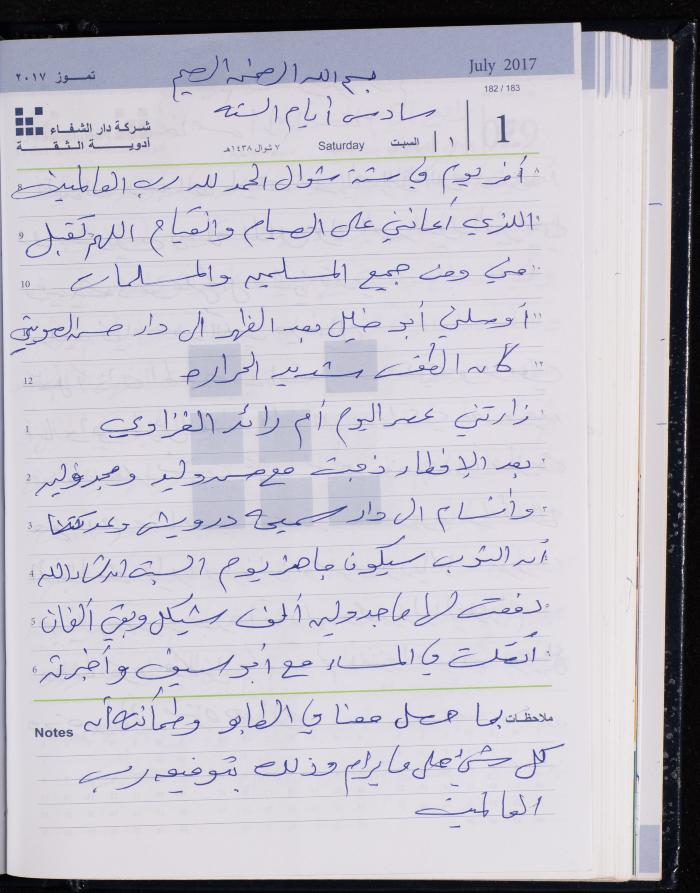 تموز ٢٠١٧
بسم الله الرحمن الرحيم
July 2017
182 / 183
سادس أيام السته
شركة دار الشفاء
أدوية الثقة
٧ شوال ١٤٣٨هـ
Saturday
السبت
١
1
آخر يوم في ستة شوال الحمد لله رب العالمين
9 اللذي أعانني على الصيام والقيام اللهم تقبل
10 مني ومن جميع المسلمين والمسلمات
أوصلني أبو خليل بعد الظهر الى دار حسن
12 كان الطقس شديد الحراره
1 زارتني عصر اليوم أم رائد الغزاوي
2 بعد الإفطار ذهبت مع وليد ومجدولين
3 وأنسام الى دار سميحه درويش
4 أن الثوب سيكون جاهز يوم السبت ان شاء الله
5 دفعت لها ماجدولين ألف شيكل وبقي ألفان
6 أتصلت في المساء مع أبو سيف وأخبرته
Notes ملاحظات بما حصل معنا في الطابو وطمأنته أن
كل شيء على ما يرام وذلك بتوفيق رب
العالمين